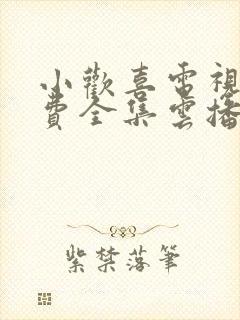 小歡喜電視
費全集雲播
紫禁落筆